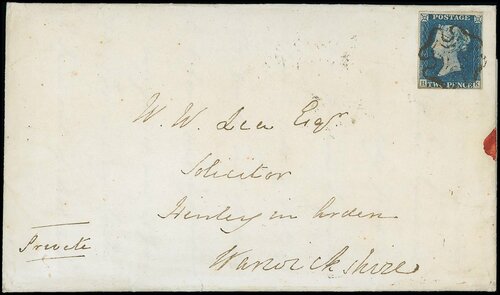 POSTAGE
TWO PENCE
W. W. Lea Esqr
Solicitor
Henley in Arden
Warwickshire
Private